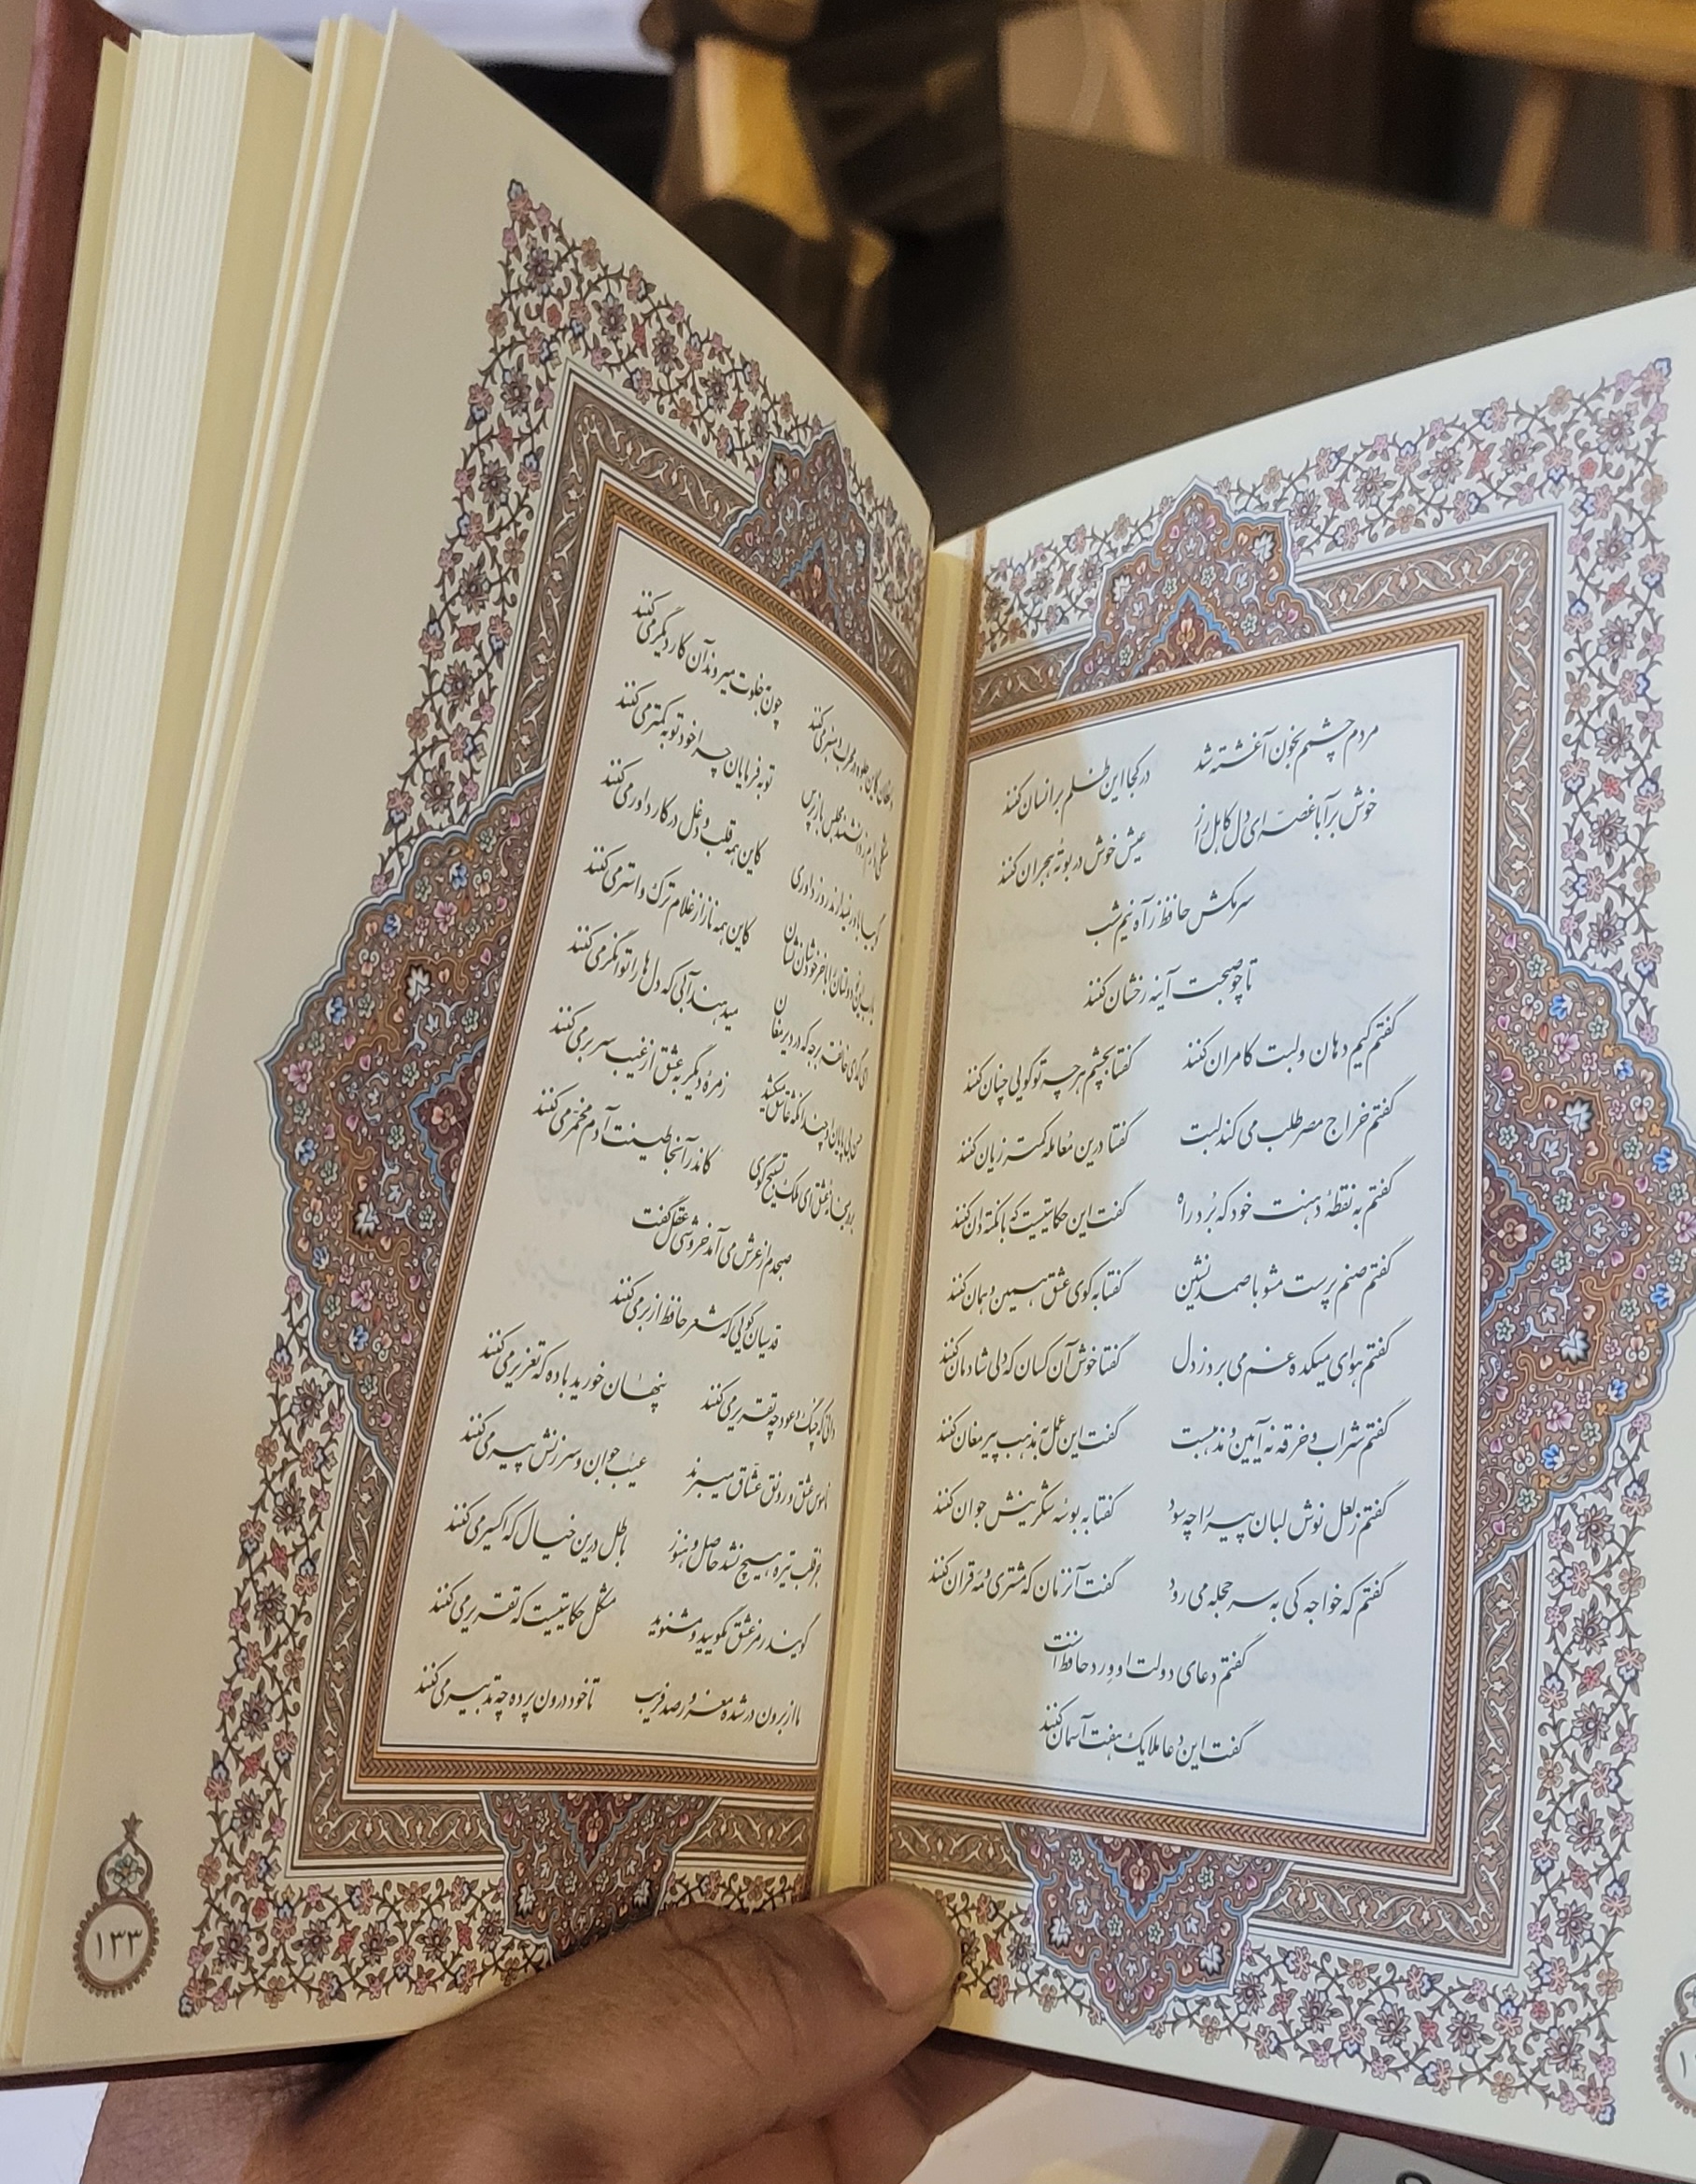 مردم چشمم بخون آغشته شد در کجا این ظلم بر انسان کنند
خوش برآ با غصه ای دل کاهل راز عیش خوش در بوتهٔ هجران کنند
سر مکش حافظ ز آه نیم شب
تا چو صبحت آینه رخشان کنند
گفتم کیم دهان و لبت کامران کنند گفتا بچشم هر چه تو گویی چنان کنند
گفتم خراج مصر طلب می کند لبت گفتا درین معامله کمتر زیان کنند
گفتم به نقطهٔ دهنت خود که بُرد راه گفت این حکایتیست که با نکته دان کنند
گفتم صنم پرست مشو با صمد نشین گفتا به کوی عشق همین و همان کنند
گفتم هوای میکده غم می برد ز دل گفتا خوش آن کسان که دلی شادمان کنند
گفتم شراب و خرقه نه آیین مذهبست گفت این عمل به مذهب پیر مغان کنند
گفتم ز لعل نوش لبان پیر را چه سود گفتا به بوسهٔ شکرینش جوان کنند
گفتم که خواجه کی به سر حجله می رود گفت آنزمان که مشتری و مه قران کنند
گفتم دعای دولت او ورد حافظ است
گفت این دعا ملایک هفت آسمان کنند
واعظان کاین جلوه در محراب و منبر می کنند چون بخلوت میروند آن کار دیگر می کنند
مشکلی دارم ز دانشمند مجلس باز پرس توبه فرمایان چرا خود توبه کمتر می کنند
گوییا باور نمیدارند روز داوری کاین همه قلب و دغل در کار داور می کنند
یارب این نودولتان را با خر خودشان نشان کاین همه ناز از غلام ترک و استر می کنند
ای گدای خانقه برجه که در دیر مغان میدهند آبی که دل ها را توانگر می کنند
حسن بی پایان او چندانکه عاشق میکشد زمرهٔ دیگر به عشق از غیب سر بر می کنند
بر در میخانهٔ عشق ای ملک تسبیح گوی کاندر آنجا طینت آدم مخمّر می کنند
صبحدم از عرش می آمد خروشی عقل گفت
قدسیان گویی که شعر حافظ از بر می کنند
دانی که چنگ و عود چه تقریر می کنند پنهان خورید باده که تعزیر می کنند
ناموس عشق و رونق عشّاق میبرند عیب جوان و سرزنش پیر می کنند
جز قلب تیره هیچ نشد حاصل و هنوز باطل درین خیال که اکسیر می کنند
گویند رمز عشق مگویید و مشنوید مشکل حکایتیست که تقریر می کنند
ما از برون در شده مغرور صد فریب تا خود درون پرده چه تدبیر می کنند
۱۳۳